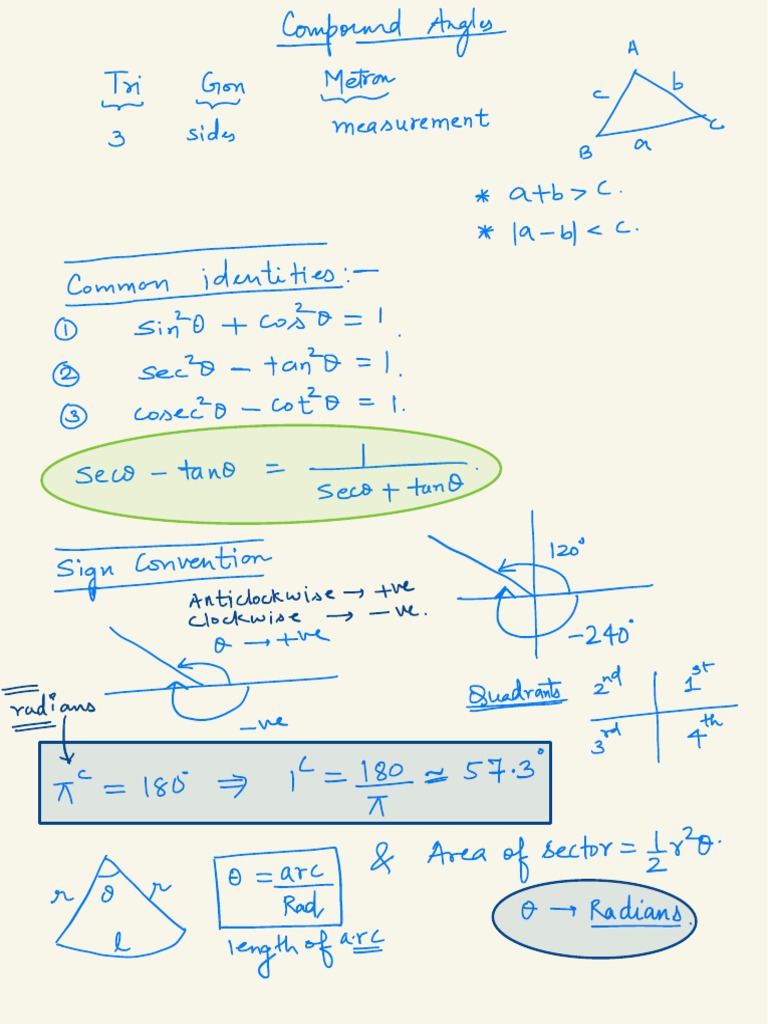 Compound Angles
Tri Gon Metron
3 sides measurement
A
c b
B a C
* a+b > c.
* |a-b| < c.
Common identities:-
① sin²θ + cos²θ = 1.
② sec²θ - tan²θ = 1.
③ cosec²θ - cot²θ = 1.
secθ - tanθ = 1/(secθ + tanθ).
Sign Convention
Anticlockwise → +ve
Clockwise → -ve.
θ → +ve
-ve
120°
-240°
Quadrants
2nd 1st
3rd 4th
radians
π^c = 180° ⇒ 1^c = 180/π ≃ 57.3°
r θ r
l
θ = arc/Rad
length of arc
& Area of sector = 1/2 r²θ.
θ → Radians.